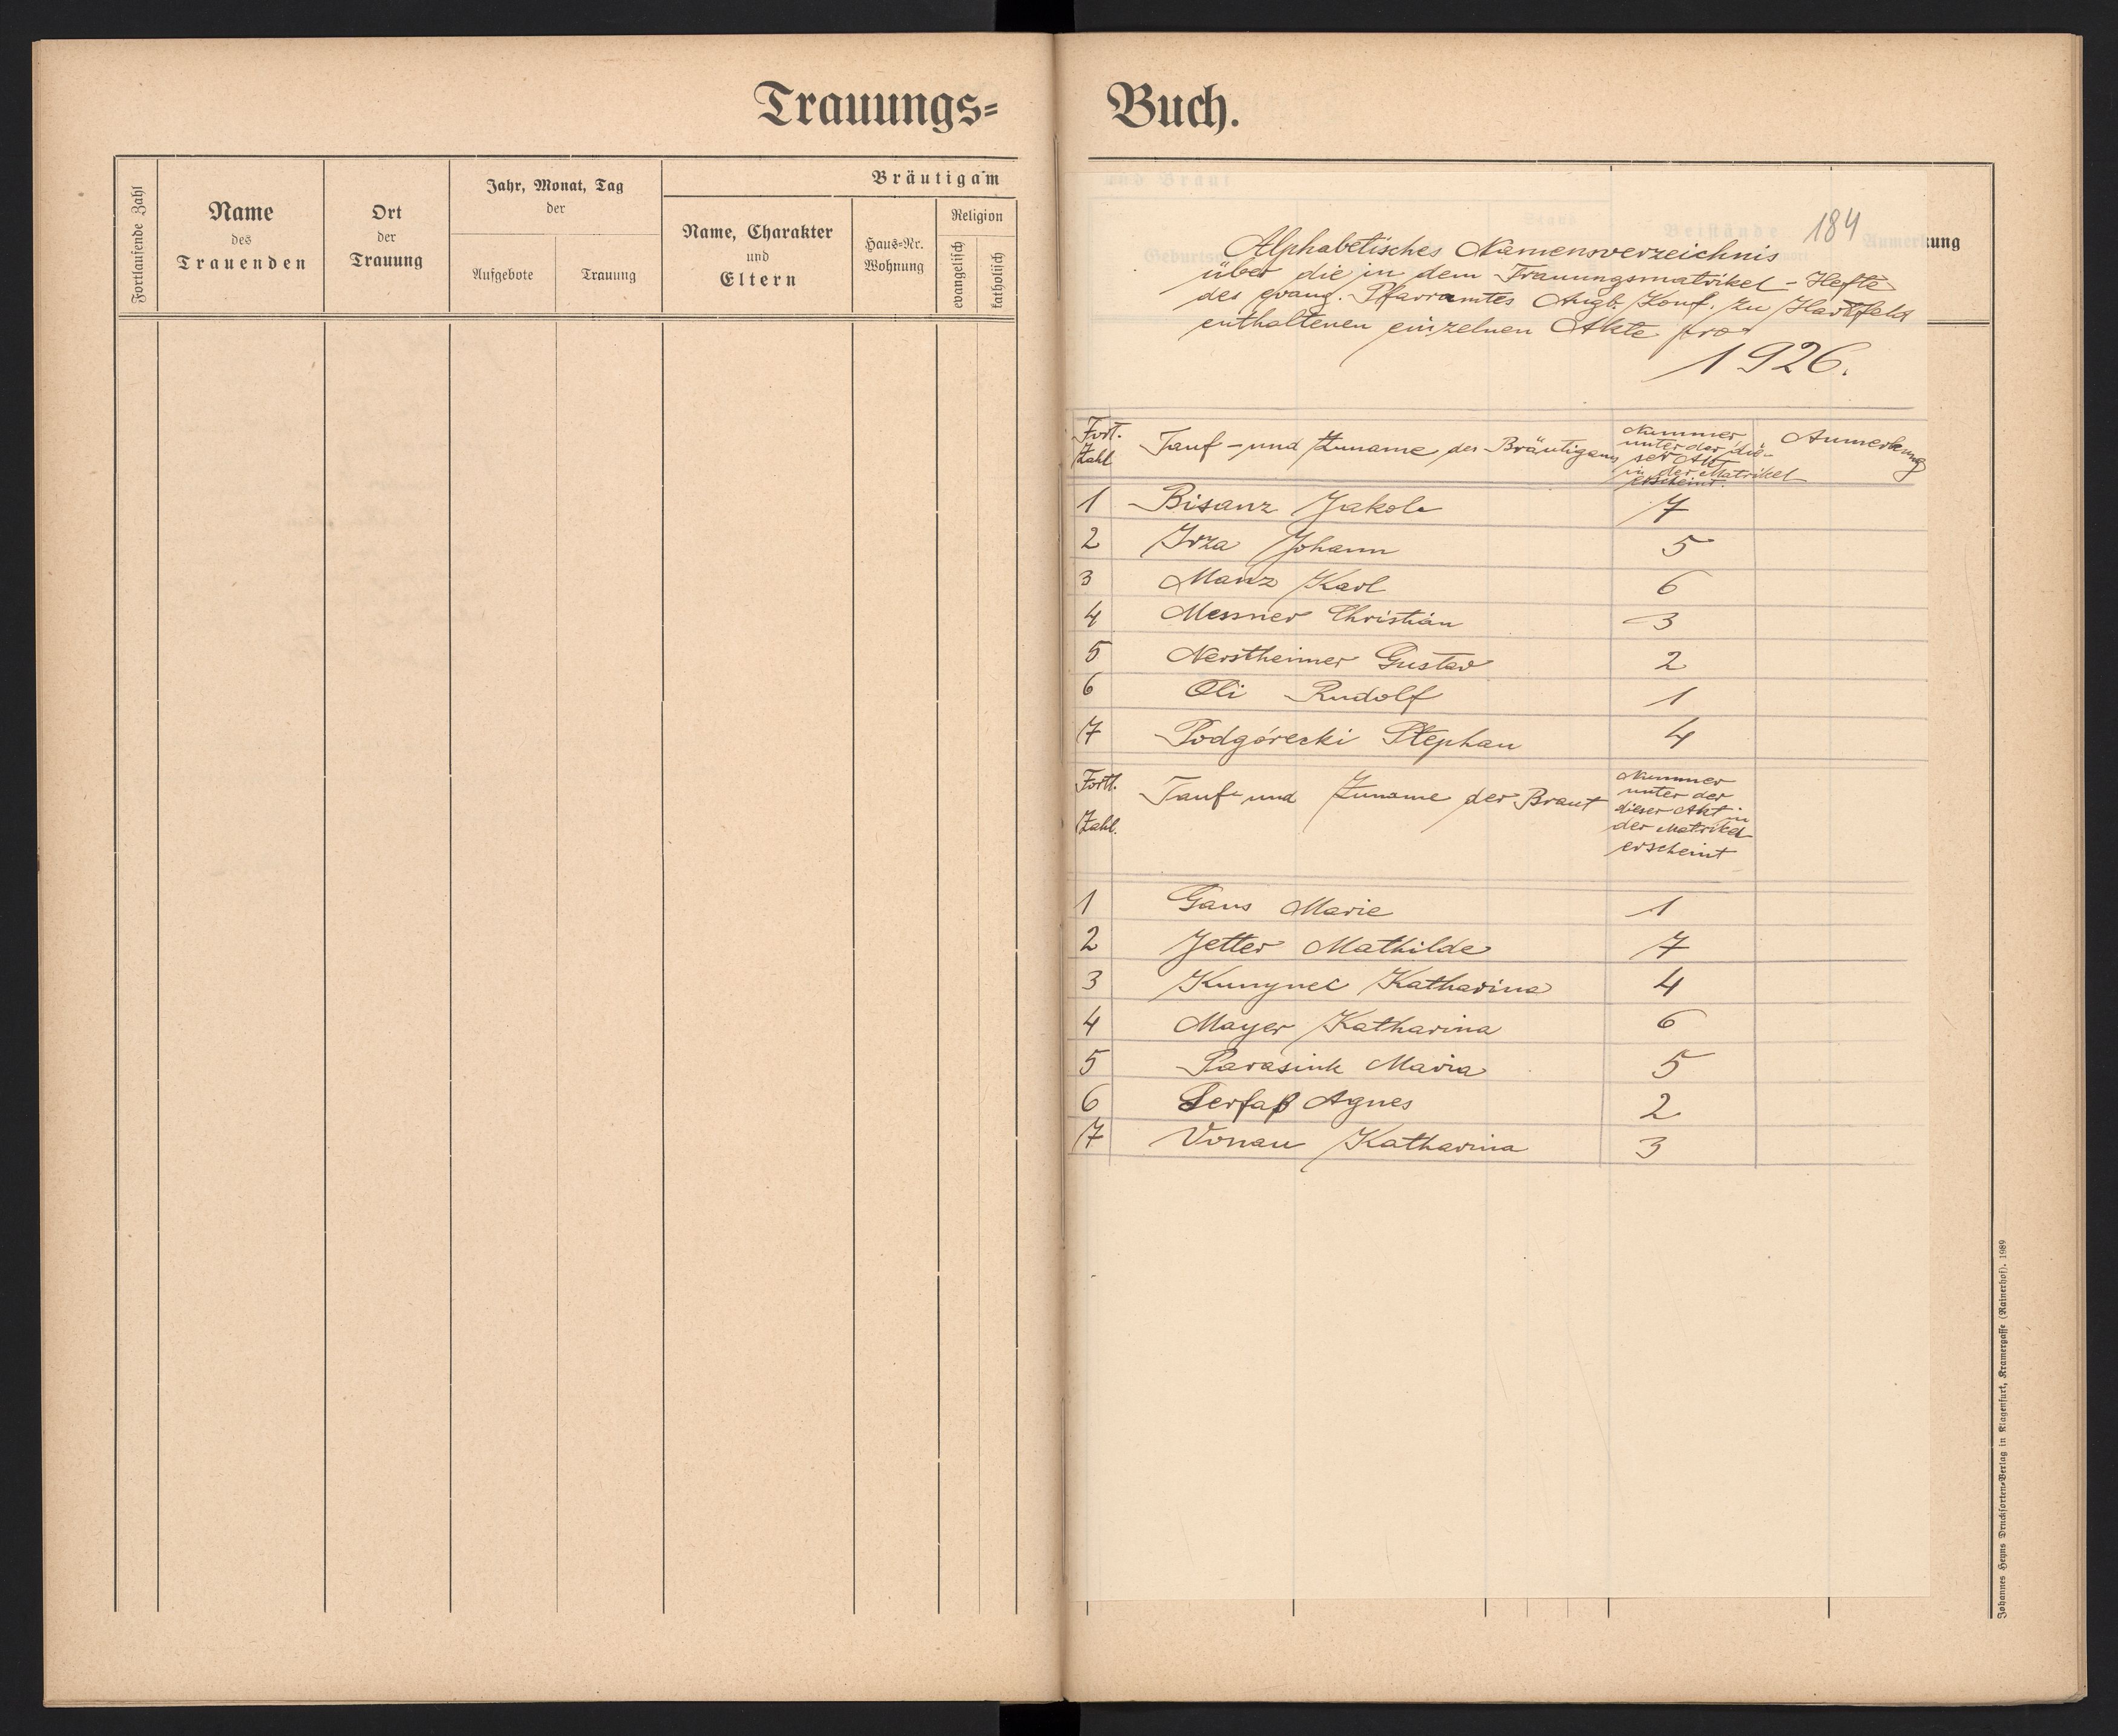 Trauungs=
Fortlaufende Zahl
Name
des
Trauenden
Ort
der
Trauung
Jahr, Monat, Tag
der
Aufgebote
Trauung
Bräutigam
Name, Charakter
und
Eltern
Haus=Nr.
Wohnung
Religion
evangelisch
katholisch
Buch.
184
kung
Alphabetisches Namensverzeichnis
über die in dem Trauungsmatrikel - Hefte
des evang. Pfarramtes Augb. Konf. zu
enthaltenen einzelnen Akte pro
1926.
Fort. Zahl
Tauf - und Zuname des Bräutigams
Nummer
unter der die-
ser Akt
in der Matrikel
erscheint.
Anmerkung
1 Bisanz Jakob 7
2 Irza Johann 5
3 Manz Karl 6
4 Messner Christian 3
5 Nerstheimer Gustav 2
6 Oli Rudolf 1
7 Podgórecki Stephan 4
Fortl.
Zahl.
Tauf- und Zuname der Braut
Nummer
unter der
dieser Akt in
der Matrikel
erscheint
1 Gans Marie 1
2 Jetter Mathilde 7
3 Kunynec Katharina 4
4 Mayer Katharina 6
5 Parasiuk Maria 5
6 Serfaß Agnes 2
7 Vonau Katharina 3
Johannes Heyns Drucksorten=Verlag in Klagenfurt, Kramergasse (Rainerhof). 1989